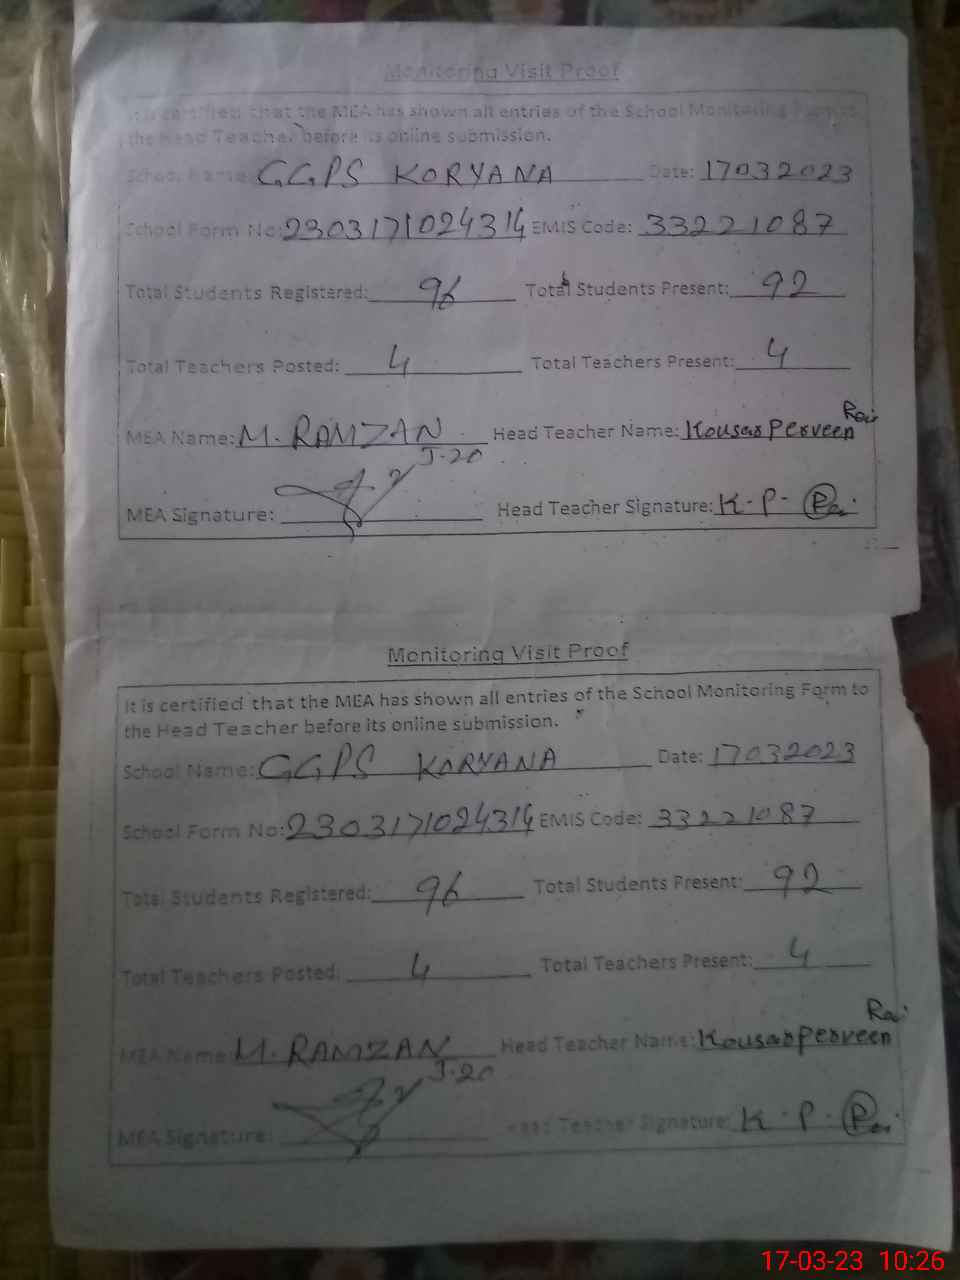 Monitoring Visit Proof
It is certified that the MEA has shown all entries of the School Monitoring Form to
the Head Teacher before its online submission.
School Name: GGPS KORYANA Date: 17032023
School Form No: 2303171024314 EMIS Code: 33221087
Total Students Registered: 96 Total Students Present: 92
Total Teachers Posted: 4 Total Teachers Present: 4
MEA Name: M. RAMZAN Head Teacher Name: Kousar Perveen
J-20
MEA Signature: Head Teacher Signature: K-P-
Monitoring Visit Proof
It is certified that the MEA has shown all entries of the School Monitoring Form to
the Head Teacher before its online submission.
School Name: GGPS KORYANA Date: 17032023
School Form No: 2303171024314 EMIS Code: 33221087
Total Students Registered: 96 Total Students Present: 92
Total Teachers Posted: 4 Total Teachers Present: 4
MEA Name: M. RAMZAN Head Teacher Name: Kousar Perveen
J-20
MEA Signature: Head Teacher Signature: K-P-
17-03-23 10:26